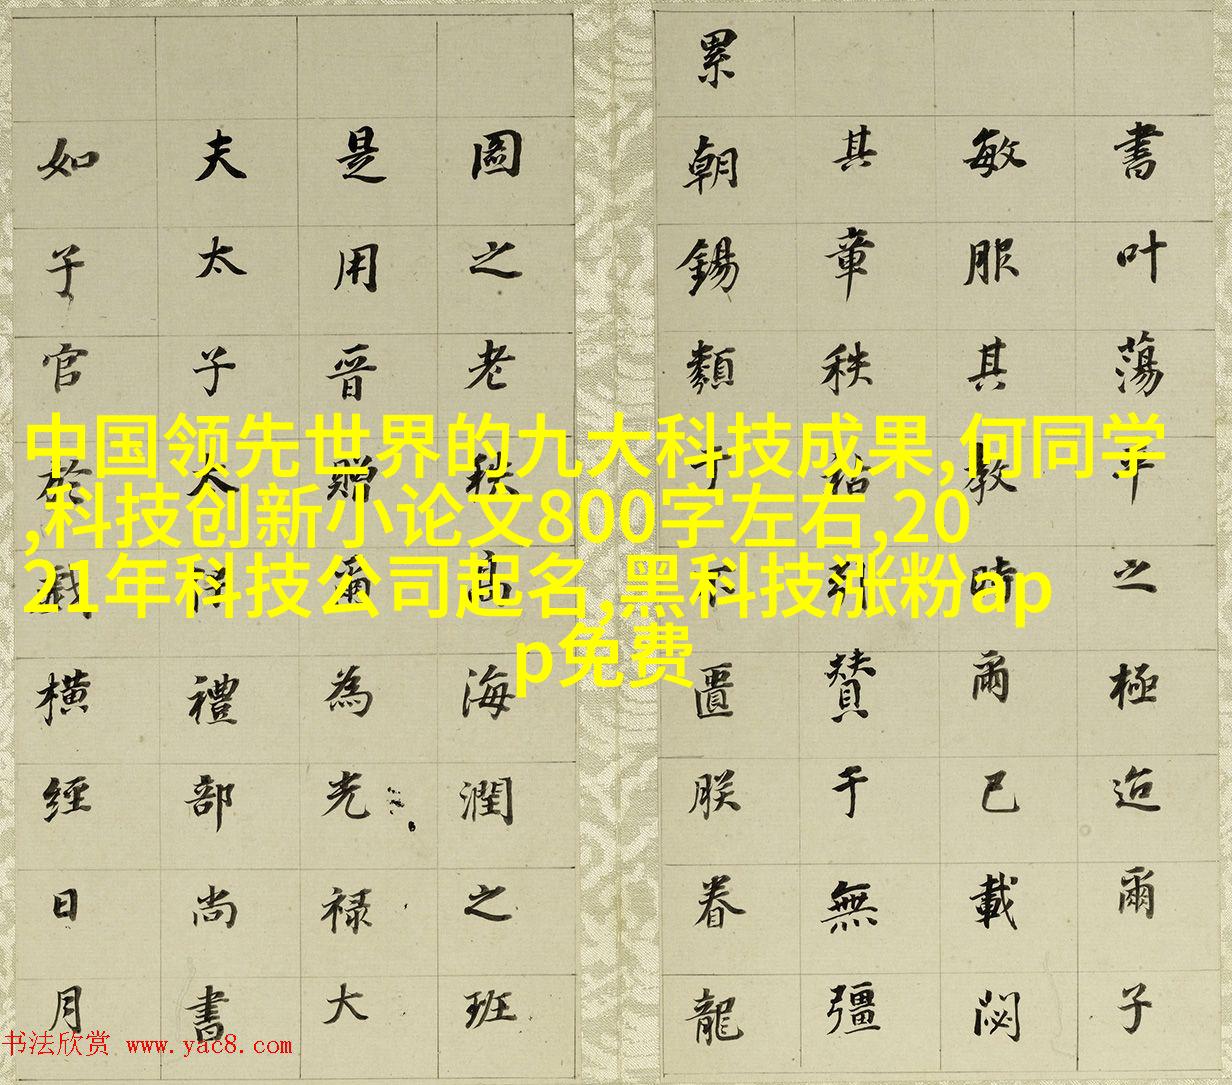 書叶蕩平之極迨爾子
敏服其教時爾已載閟
其章秩贊于無彊
累朝錫類于不匱朕眷龍
圖之老秩高海潤之班
是用晉贈爾為光禄大
夫太子太保禮部尚書
如子官於戲橫經日月
中国领先世界的九大科技成果,何同学
,科技创新小论文800字左右,20
21年科技公司起名,黑科技涨粉ap
p免费
书法欣赏 www.yac8.com